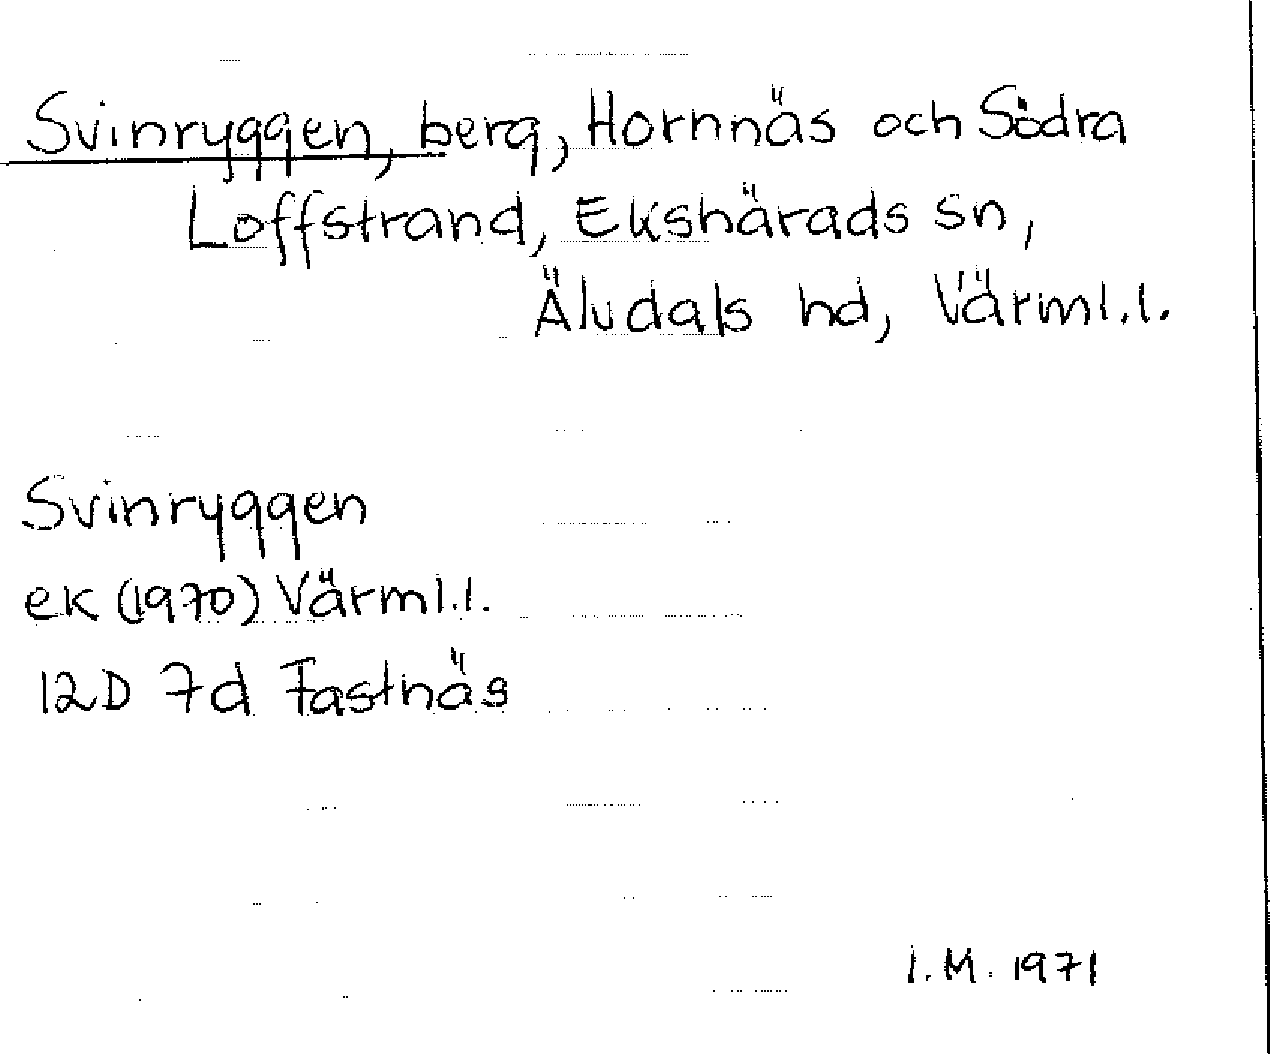 Svinryggen, berg, Hornnäs och Södra
Loffstrand, Ekshärads sn,
Älvdals hd, Värml.l.
Svinryggen
ek (1970) Värml.l.
12D 7d Fastnäs
I.M. 1971